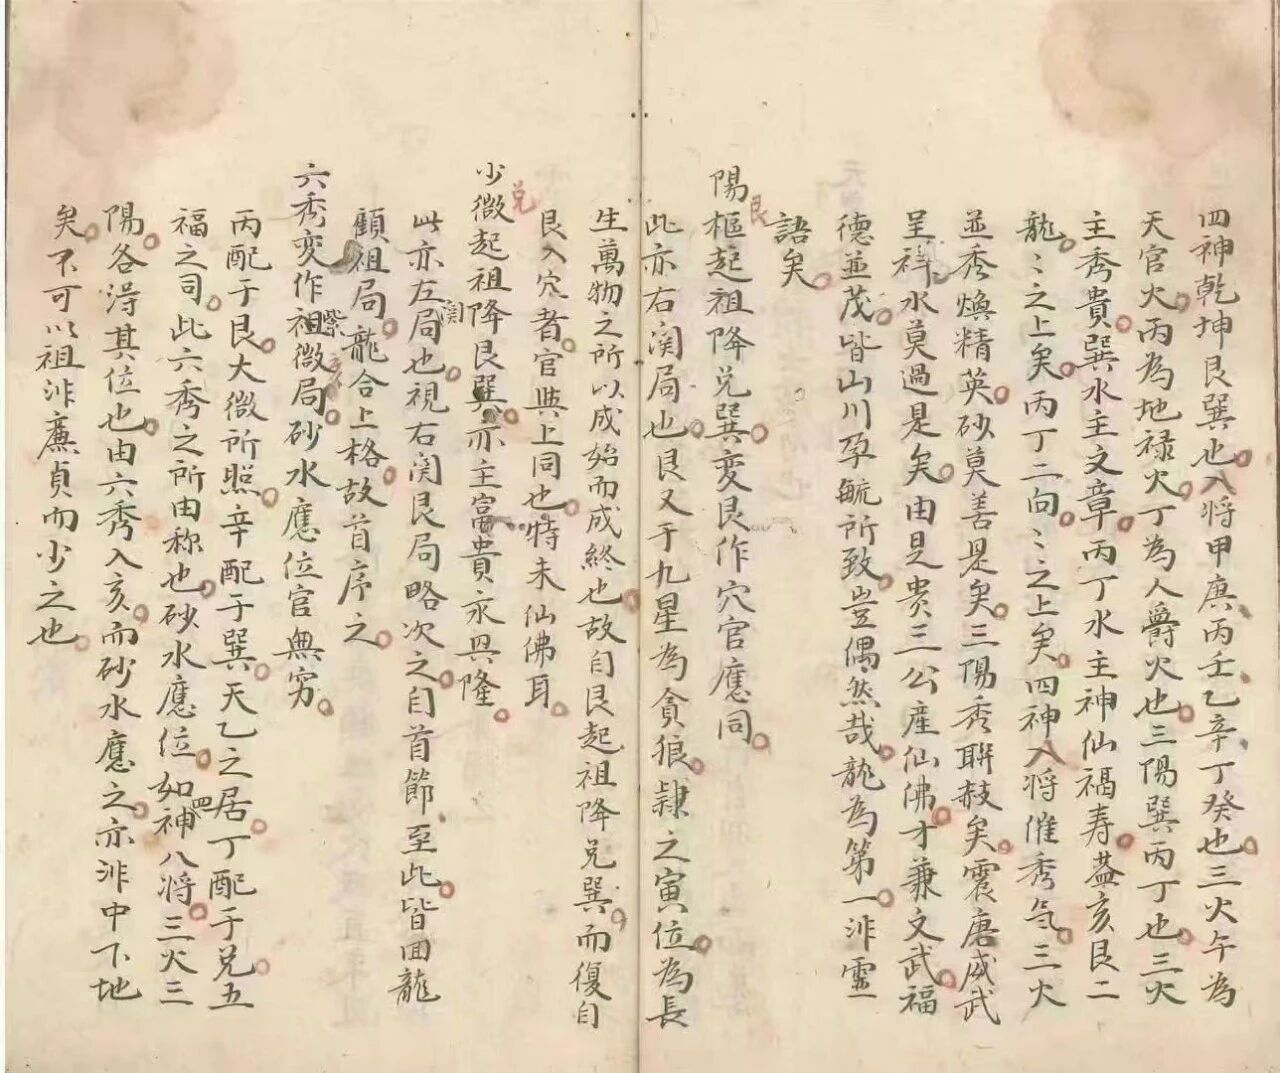 四神乾坤艮巽也入将甲庚丙壬乙辛丁癸也三火午為
天官火丙為地禄火丁為人爵火也三陽巽丙丁也三火
主秀貴巽水主文章丙丁水主神仙福寿葢亥艮二
龍〻之上矣丙丁二向〻之上矣四神入将催秀気三火
並秀煥精英砂莫善是矣三陽秀聨赦矣震唐威武
呈祥水莫過是矣由是貴三公產仙佛才兼文武福
德並茂皆山川孕毓所致豈偶然哉龍為第一非靈
語矣
陽樞起祖降兑巽変艮作穴官應同
艮
此亦右関局也艮又于九星為貪狼隷之寅位為長
生萬物之所以成始而成終也故自艮起祖降兑巽而復自
艮入穴者官與上同也特未仙佛耳
少微起祖降艮巽亦主富貴永興隆
兑
此亦左局也視右関艮局略次之自首節至此皆回龍
関
顧祖局龍合上格故首序之
六秀変作祖微局砂水應位官無穷
紫
丙配于艮大微所照辛配于巽天乙之居丁配于兑五
福之司此六秀之所由称也砂水應位如神八将三火三
四
陽各淂其位也由六秀入亥而砂水應之亦非中下地
矣不可以祖非廉貞而少之也